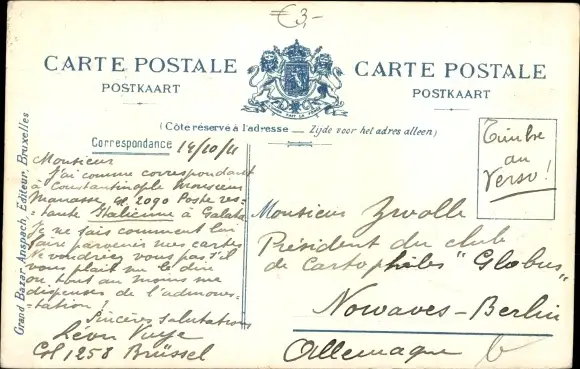 €3,-
CARTE POSTALE
POSTKAART
CARTE POSTALE
POSTKAART
(Côté réservé à l'adresse — Zijde voor het adres alleen)
Correspondance 14/10/11
Timbre
au
Verso!
Monsieur
J'ai comme correspondant
à Constantinople Monsieur
Manasse Gl 2090 Poste res-
tante Italienne à Galata
Je ne sais comment lui
faire parvenir mes cartes
Ne voudriez vous pas s'il
vous plait me le dire
ou tout au moins me
dispenser de l'admones-
tation!
Sincères salutations
Léon Vuye
Gl 1258 Brüssel
Monsieur Zwolle
Président du club
de Cartophiles "Globus"
Nowaves-Berlin
Allemagne
Grand Bazar Anspach, Editeur, Bruxelles